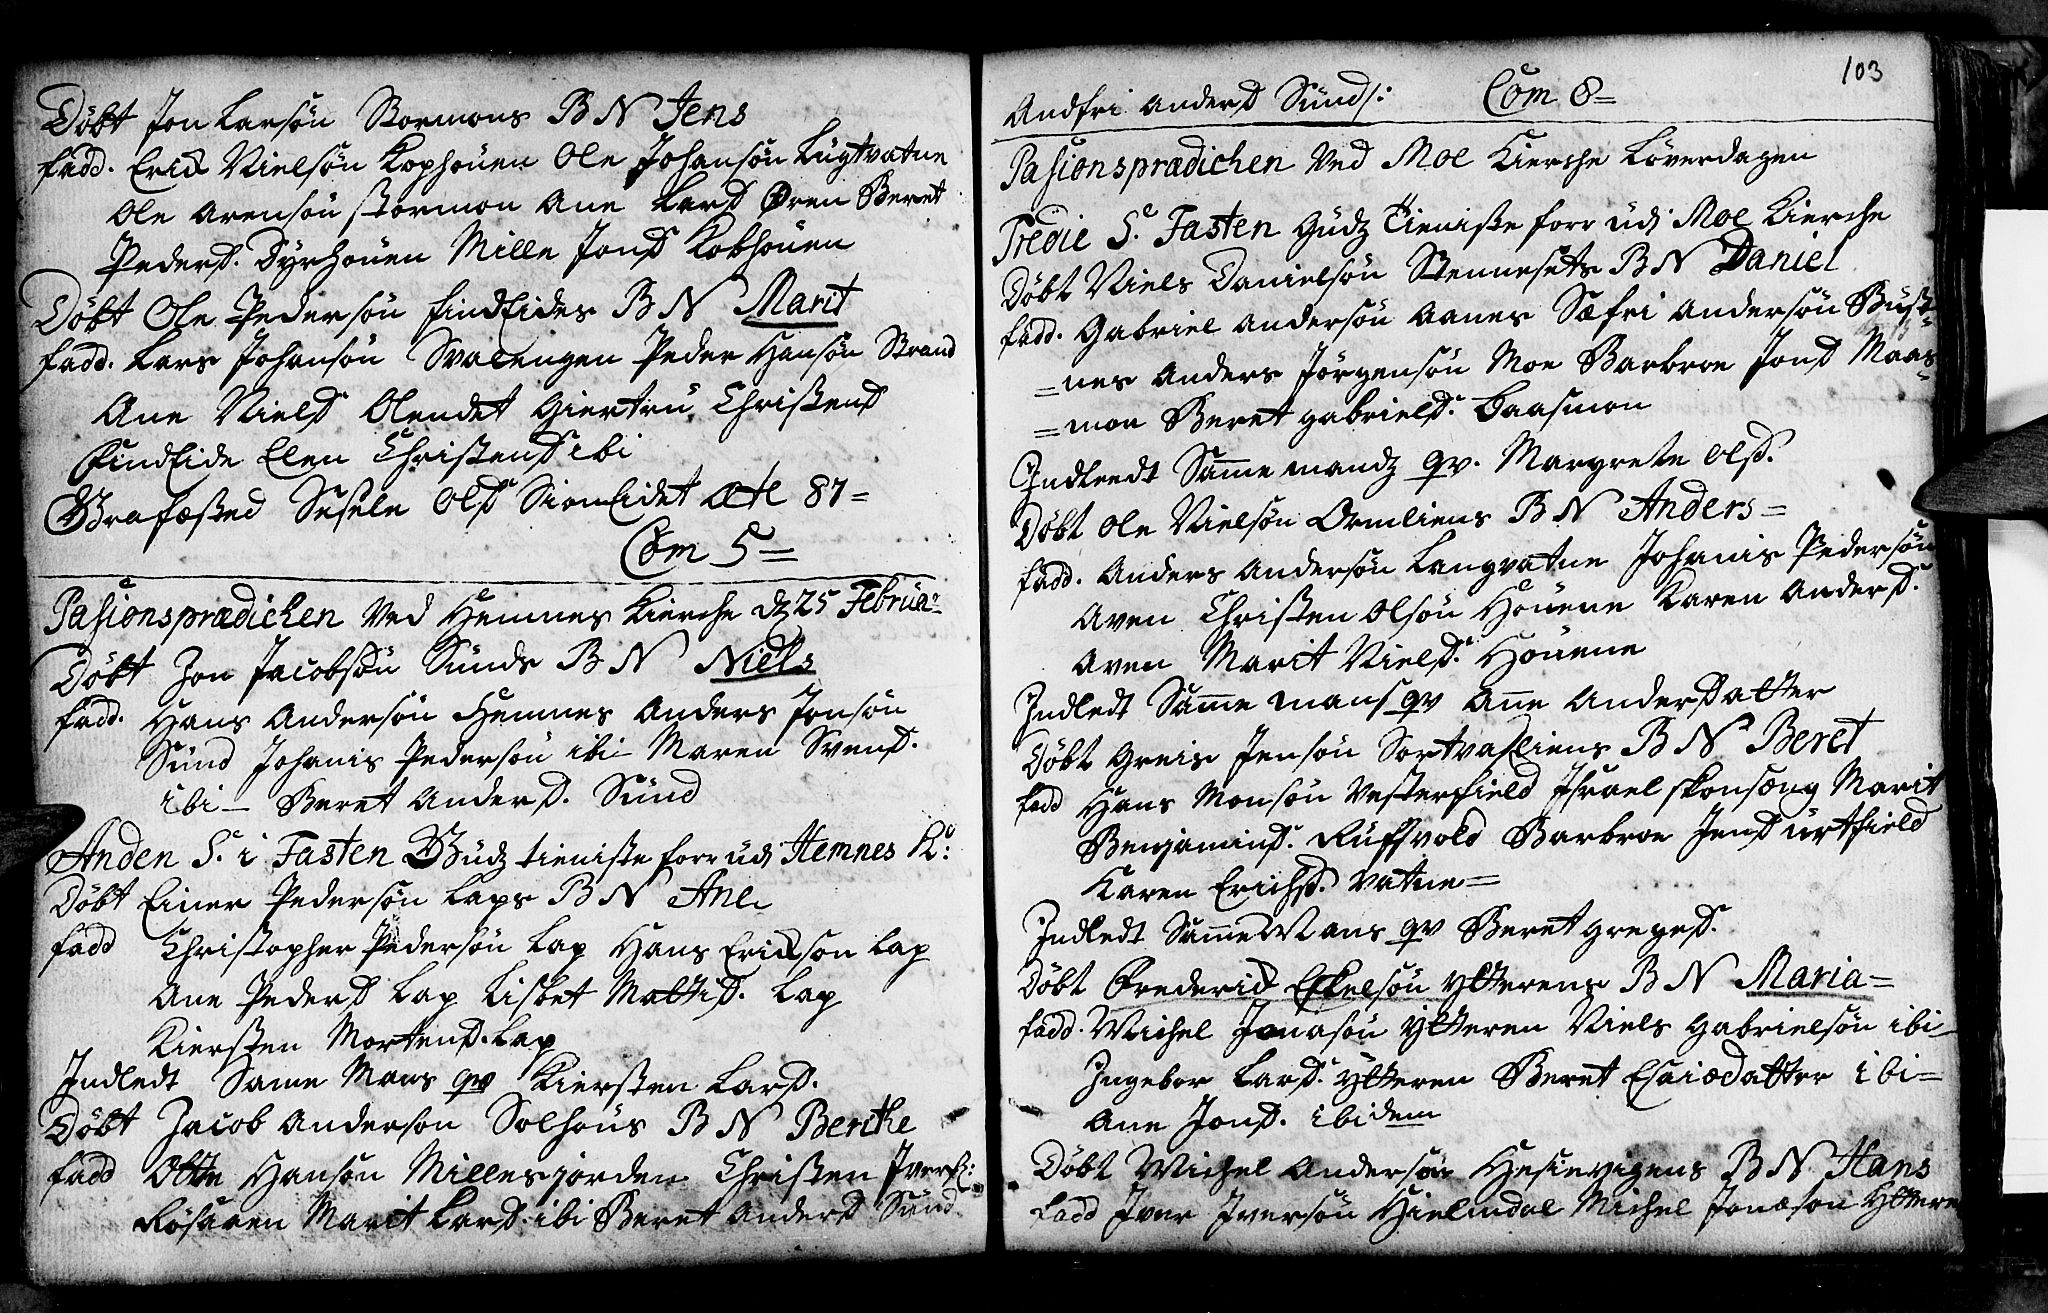 Döbt Jon Larsön Stormons B N Jens
fadd. Erich Nielsön Kophouen Ole Johansön Lugtvatne
Ole Arensön Stormon Ane Larsd Øren Beret
Pedersd. Dyrhouen Mille Jonsd Kobhouen
Döbt Ole Pedersön findEides B N Marit
fadd. Lars Johansön Svalengen Peder Hansön Strand
Ane Nielsd Olendet Giertru Christensd
FindEide Elen Christensd ibi
Grafæsted Sesele Olsd SionEidet æte 87=
Com 5=
Pasionsprædichen Ved Hemnes Kierche d 25 Februa:
Döbt Jon Jacobsön Sunds B N Niels
fadd. Hans Andersön Hemnes Anders Jonsön
Sund Johanis Pedersön ibi- Maren Svensd.
ibi- Beret Andersd. Sund
Anden S. i Fasten Gudz tieniste forud Hemnes K:
Döbt Einer Pedersön Laps B N Ane
fadd Christopher Pedersön Lap Hans Erichson Lap
Ane Pedersd Lap Lisbet Mattisd. Lap
Kiersten Mortensd. Lap
Indledt Same Mans qv Kiersten Larsd.
Döbt Jacob Anderson Solhous B N Berethe
fadd Otte Hansön Millesjorden Christen Iverss:
Rösaaen Marit Larsd. ibi Beret Andersd Sund.
103
Andfri Andersd Sund/: Com 8=
Pasionsprædichen Ved Moe Kierche Löverdagen
Tredie S. Fasten Gudz Tieniste forud Moe Kierche
Döbt Niels Danielsön Stennesets B N Daniel
fadd. Gabriel Andersön Aanes Sæfri Andersön Bust-
=nes Anders Jörgensön Moe Barbroe Jonsd Maas-
=mon Beret Gabrielsd. Baasmon
Indleedt Same mandz qv. Margrete Olsd.
Döbt Ole Nielsön Ormliens B N Anders=
fadd. Anders Andersön Langvatne Johanis Pedersön
Aven Christen Olsön Houene Karen Andersd.
Aven Marit Nielsd. Houene
Indledt Same mans qv Ane Andersdatter
Döbt Greis Jensön Sortvasliens B N Beret
fadd Hans Monsön Vesterfield Israel Skonsæng Marit
Benjaminsd. Ruffvold Barbroe Jensd Urtfield
Karen Erichsd. Vatne=
Indledt Same Mans qv Beret Gregesd.
Döbt Frederich Eskelsön Ytterens B N Maria=
fadd. Michel Jonasön Ytteren Niels Gabrielsön ibi-
Ingebor Larsd. Ytteren Beret Esaiædatter ibi=
Ane Jonsd. ibidem
Döbt Michel Andersön Hestevigens B N. Hans
fadd Iver Iversön Hielmdal Michel Jonæson Yttere